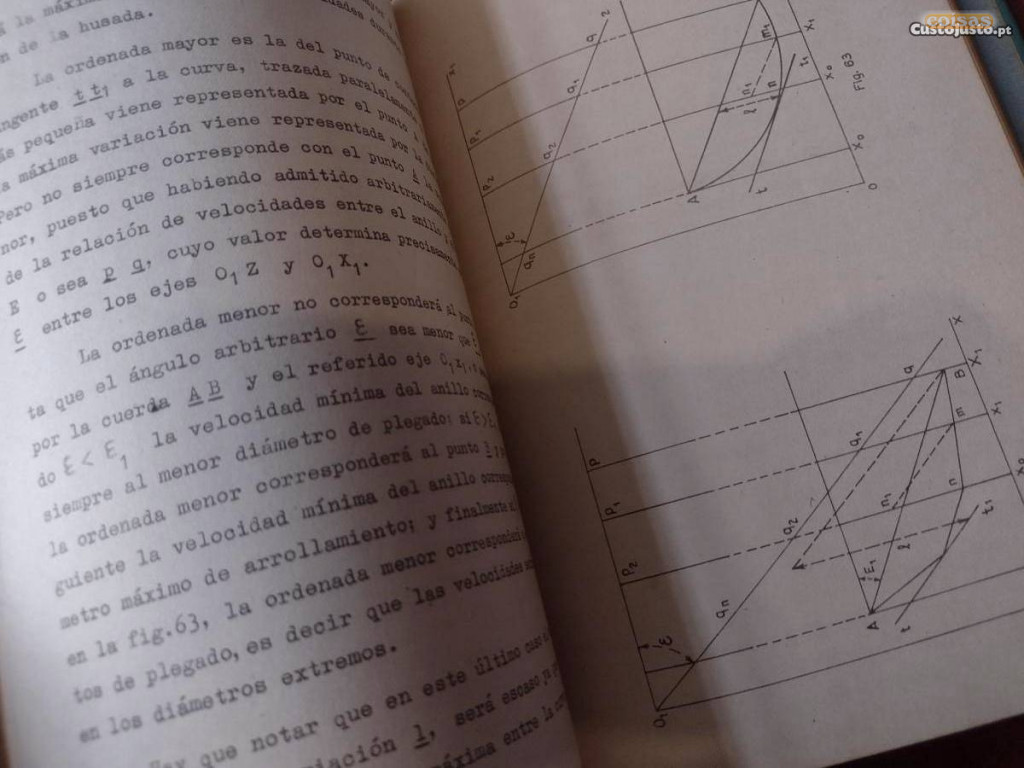 á la máxima
n de la husada.
La ordenada mayor es la del punto de
angente t t1 a la curva, trazada paralelamente
ás pequeña viene representada por el punto
a máxima variación viene representada por la
Pero no siempre corresponde con el punto A
nor, puesto que habiendo admitido arbitrariamente
de la relación de velocidades entre el anillo y
E o sea p q, cuyo valor determina precisamente
Ɛ entre los ejes O1 Z y O1 X1.
La ordenada menor no corresponderá al
ta que el ángulo arbitrario Ɛ sea menor que
por la cuerda A B y el referido eje
do Ɛ < Ɛ1 la velocidad mínima del anillo
siempre al menor diámetro de plegado; si
la ordenada menor corresponderá al punto
guiente la velocidad mínima del anillo
metro máximo de arrollamiento; y finalmente
en la fig.63, la ordenada menor corresponderá
tos de plegado, es decir que las velocidades
en los diámetros extremos.
Hay que notar que en este último caso
riación l, será escaso
máxima entre la
x1
z
p
q
p1
q1
p2
q2
Ɛ
qn
O1
A
m1
n1
l
n
t
t1
x1
x0
x0
O
Fig. 63
p
q
p1
q1
p2
q2
qn
Ɛ
O1
Ɛ1
A
B
m
n
n1
l
t
t1
X
X1
x1
x0
coisas
CustoJusto.pt